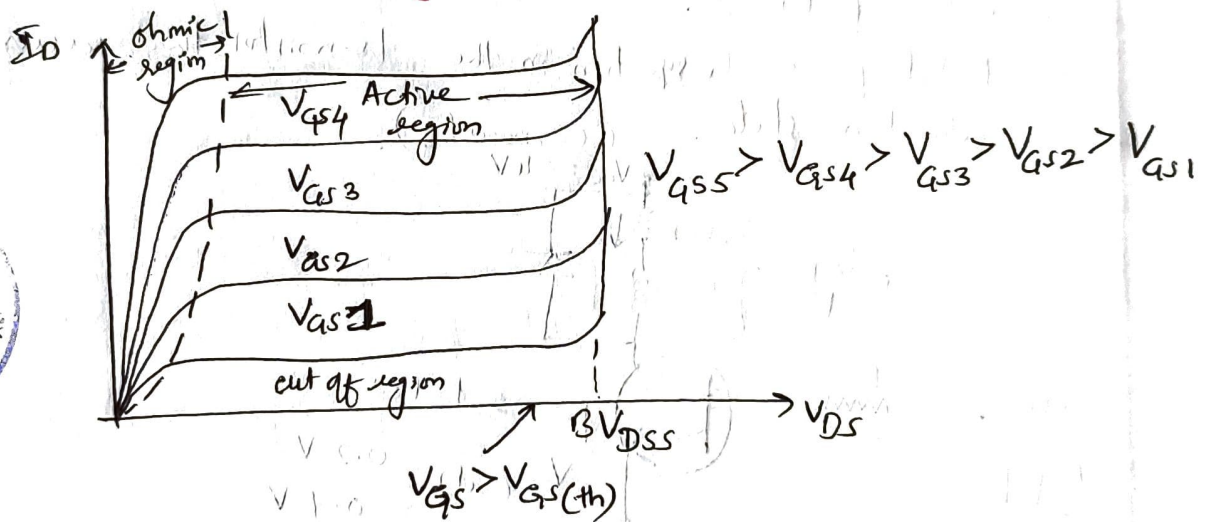 I_D
ohmic
regim
V_GS4 Active
region
V_GS3
V_GS2
V_GS1
cut of region
V_GS5 > V_GS4 > V_GS3 > V_GS2 > V_GS1
BV_DSS
V_DS
V_GS > V_GS(th)